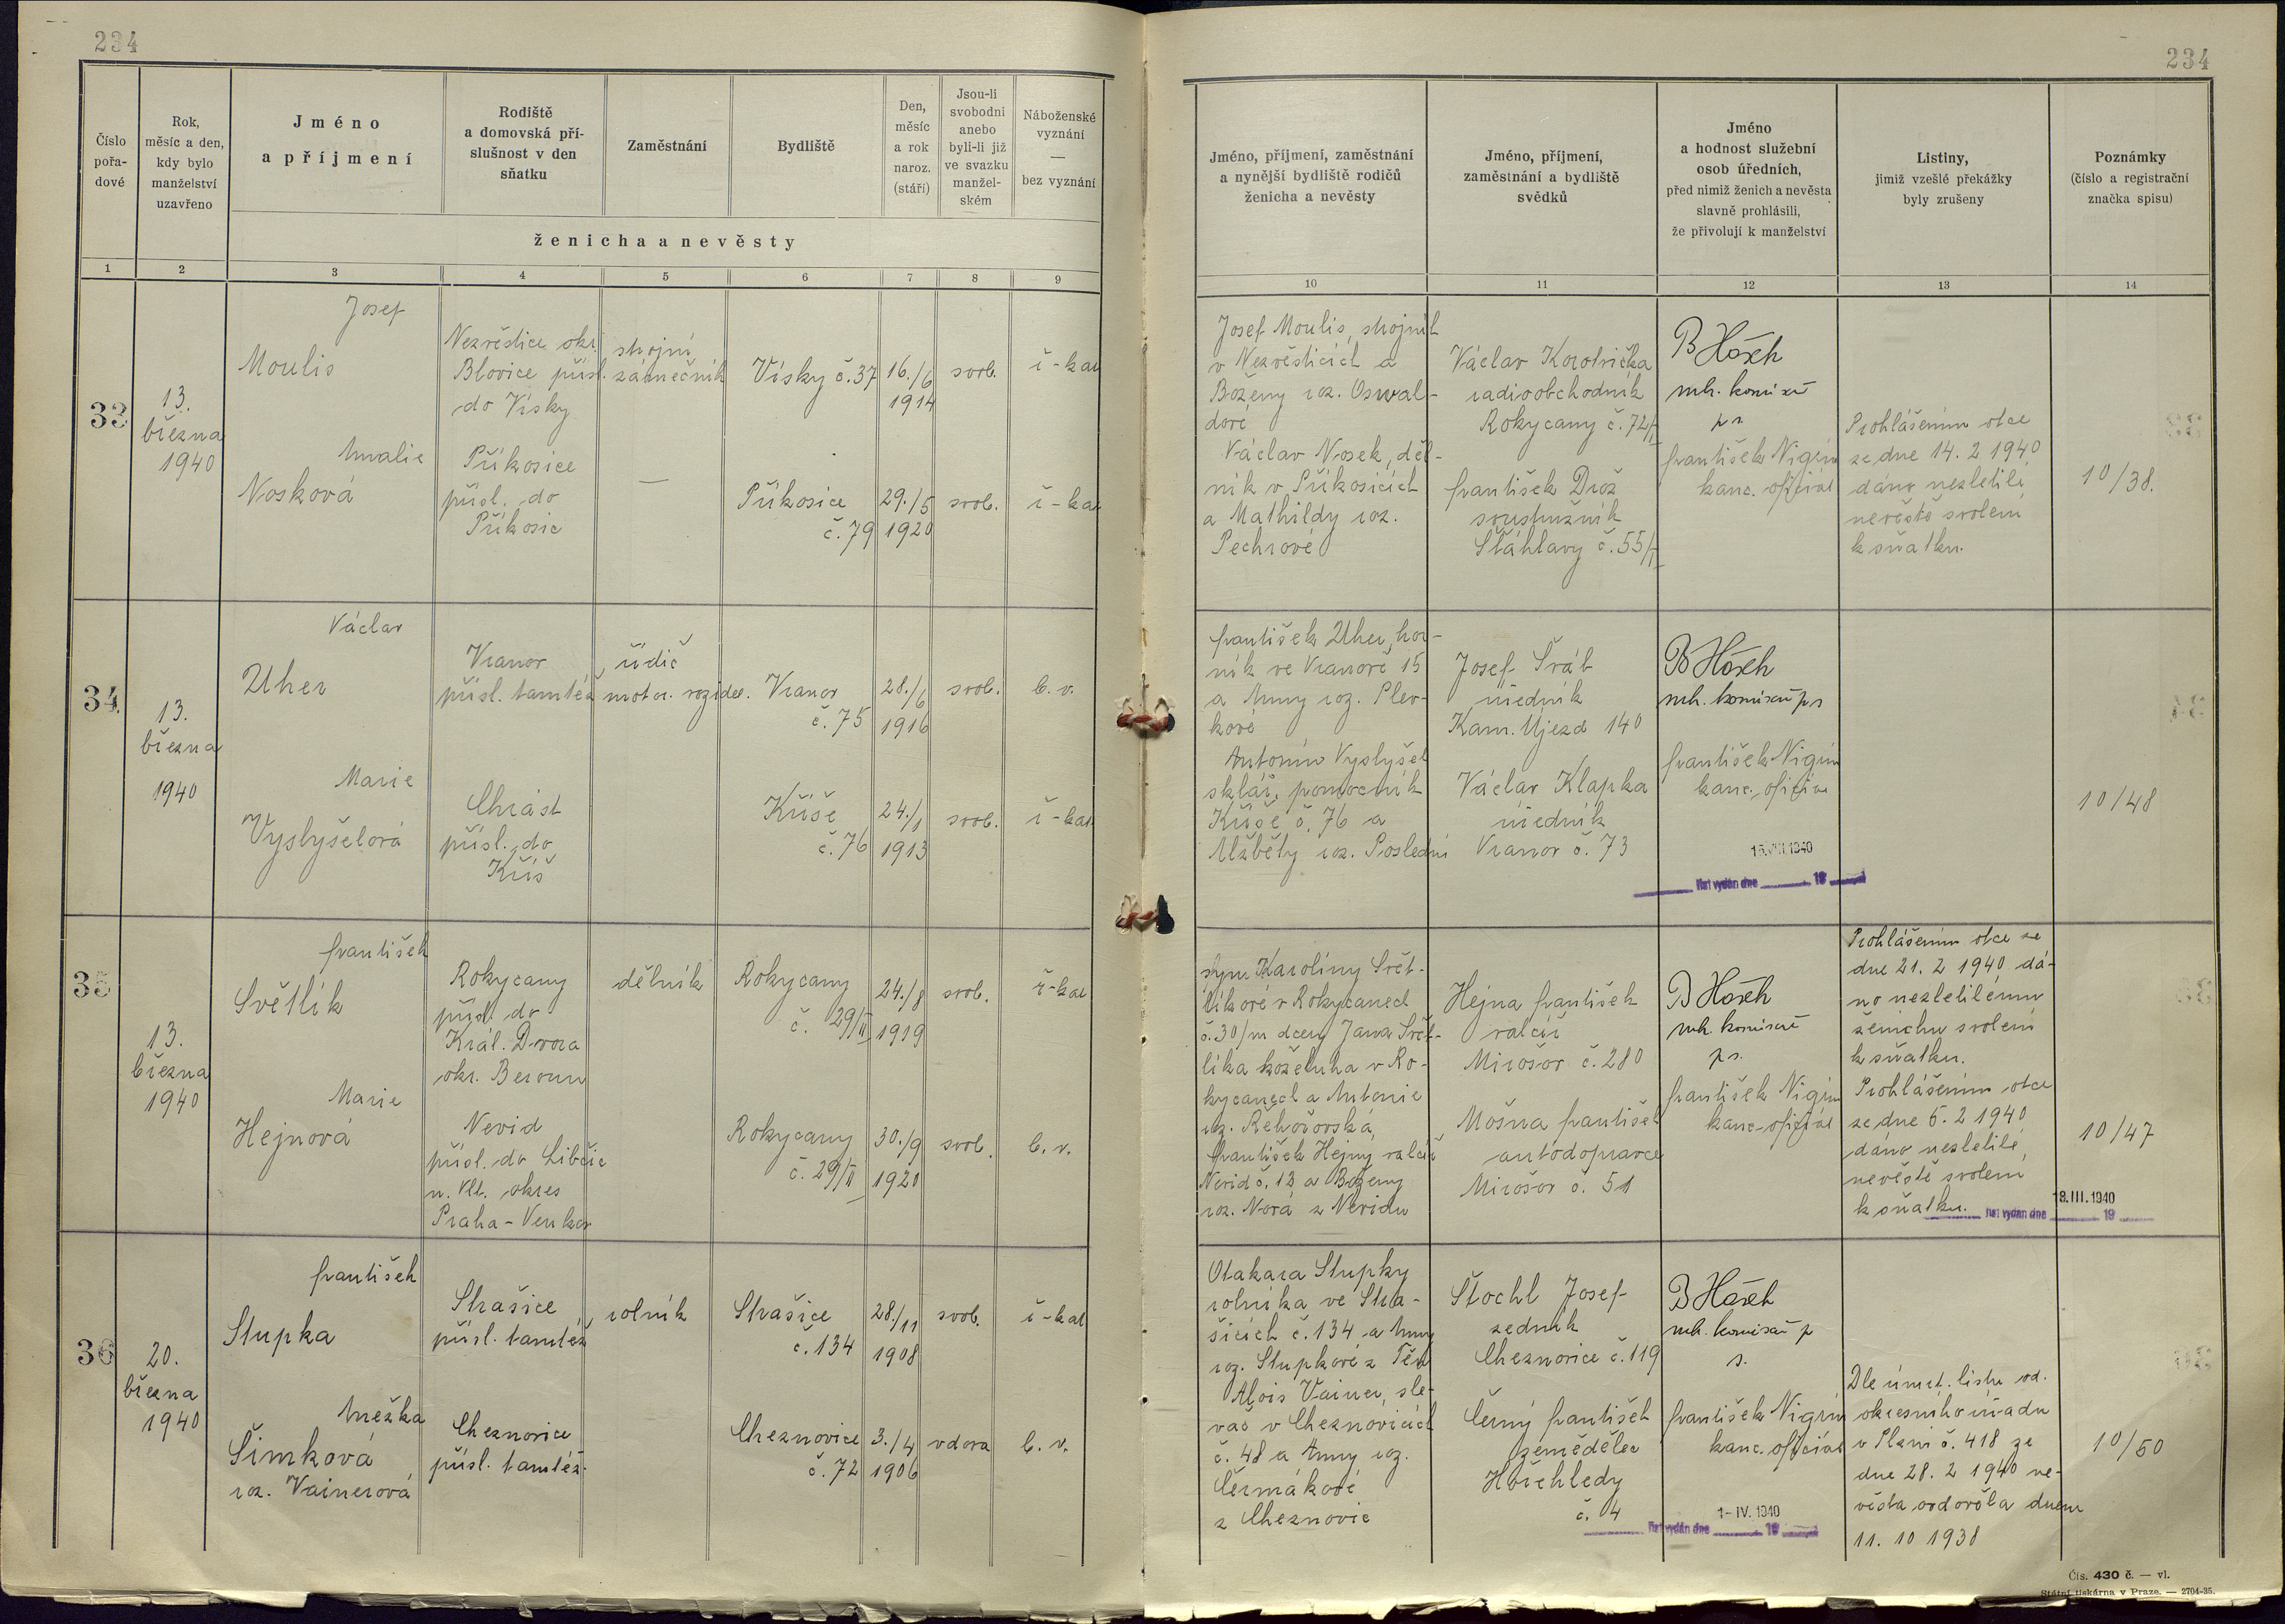 234
234
Číslo
pořa-
dové
Rok,
měsíc a den,
kdy bylo
manželství
uzavřeno
Jméno
a příjmení
Rodiště
a domovská pří-
slušnost v den
sňatku
Zaměstnání
Bydliště
Den,
měsíc
a rok
naroz.
(stáří)
Jsou-li
svobodni
anebo
byli-li již
ve svazku
manžel-
ském
Náboženské
vyznání
—
bez vyznání
ženicha a nevěsty
1 2 3 4 5 6 7 8 9
Jméno, příjmení, zaměstnání
a nynější bydliště rodičů
ženicha a nevěsty
Jméno, příjmení,
zaměstnání a bydliště
svědků
Jméno
a hodnost služební
osob úředních,
před nimiž ženich a nevěsta
slavně prohlásili,
že přivolují k manželství
Listiny,
jimiž vzešlé překážky
byly zrušeny
Poznámky
(číslo a registrační
značka spisu)
10 11 12 13 14
33
13.
března
1940
Josef
Moulis
Nezvěstice okr.
Blovice přísl.
do Vísky
strojní
zámečník
Vísky č. 37
16./6
1914
svob.
ř-kat
Amalie
Nosková
Příkosice
přísl. do
Příkosic
—
Příkosice
č. 79
29./5
1920
svob.
ř-kat
Josef Moulis, strojník
v Nezvěsticích a
Boženy roz. Oswal-
dové
Václav Nosek, děl-
ník v Příkosicích
a Mathildy roz.
Pechrové
Václav Korotvička
radioobchodník
Rokycany č. 72/I
František Drož
soustružník
Šťáhlavy č. 55/I
B Hošek
mk. komisař
ps
František Nigrin
kanc. oficiál
Prohlášením otce
ze dne 14. 2 1940
dáno nezletilé
nevěstě svolení
k sňatku.
10/38.
34.
13.
března
1940
Václav
Uher
Vranov
přísl. tamtéž
řidič
motor. vozidel.
Vranov
č. 75
28./6
1916
svob.
b. v.
Marie
Vyslyšelová
Chrást
přísl. do
Kříš
Kříše
č. 76
24./1
1913
svob.
ř-kat.
František Uher, hor-
ník ve Vranově 15
a Anny roz. Plev-
kové
Antonín Vyslyšel
sklář. pomocník
Kříše č. 76 a
Alžběty roz. Poslední
Josef Šráb
úředník
Kam. Újezd 140
Václav Klapka
úředník
Vranov č. 73
B Hošek
mk. komisař ps
František Nigrin
kanc. oficiál
15.VII.1940
list vydán dne 19
10/48
35
13.
března
1940
František
Světlík
Rokycany
přísl. do
Král. Dvora
okr. Beroun
dělník
Rokycany
č. 29/II
24./8
1919
svob.
ř-kat
Marie
Hejnová
Nevid
přísl. do Libčic
n. Vlt. okres
Praha-Venkov
Rokycany
č. 29/II
30./9
1920
svob.
b. v.
syn Karolíny Svět-
líkové v Rokycanech
č. 30/III dcery Jana Svět-
líka koželuha v Ro-
kycanech a Antonie
roz. Řehořovská
František Hejný, valcíř
Nevid č. 12 a Boženy
roz. Nová z Nevidu
Hejna František
valcíř
Mirošov č. 280
Mošna František
autodopravce
Mirošov č. 51
B Hošek
mk. komisař
ps.
František Nigrin
kanc. oficiál
Prohlášením otce ze
dne 21. 2 1940 dá-
no nezletilému
ženichu svolení
k sňatku.
Prohlášením otce
ze dne 6. 2 1940
dáno nezletilé
nevěstě svolení
k sňatku.
18.III.1940
list vydán dne 19
10/47
36
20.
března
1940
František
Stupka
Strašice
přísl. tamtéž
rolník
Strašice
č. 134
28./11
1908
svob.
ř-kat
Anežka
Šimková
roz. Vainerová
Cheznovice
přísl. tamtéž.
Cheznovice
č. 72
3./4
1906
vdova
b. v.
Otakara Stupky
rolníka ve Stra-
šicích č. 134 a Anny
roz. Stupkové z Těň
Alois Vainer, sle-
vač v Cheznovicích
č. 48 a Anny roz.
Čermákové
z Cheznovic
Štochl Josef
zedník
Cheznovice č. 119
Černý František
zemědělec
Hořehledy
č. 4
B Hošek
mk. komisař p
s.
František Nigrin
kanc. oficiál
1-IV.1940
list vydán dne 19
Dle úmrt. listu od.
okresního úřadu
v Plzni č. 418 ze
dne 28. 2 1940 ne-
věsta ovdověla dnem
11. 10 1938
10/50
Čís. 430 č. — vl.
Státní tiskárna v Praze. — 2704-35.